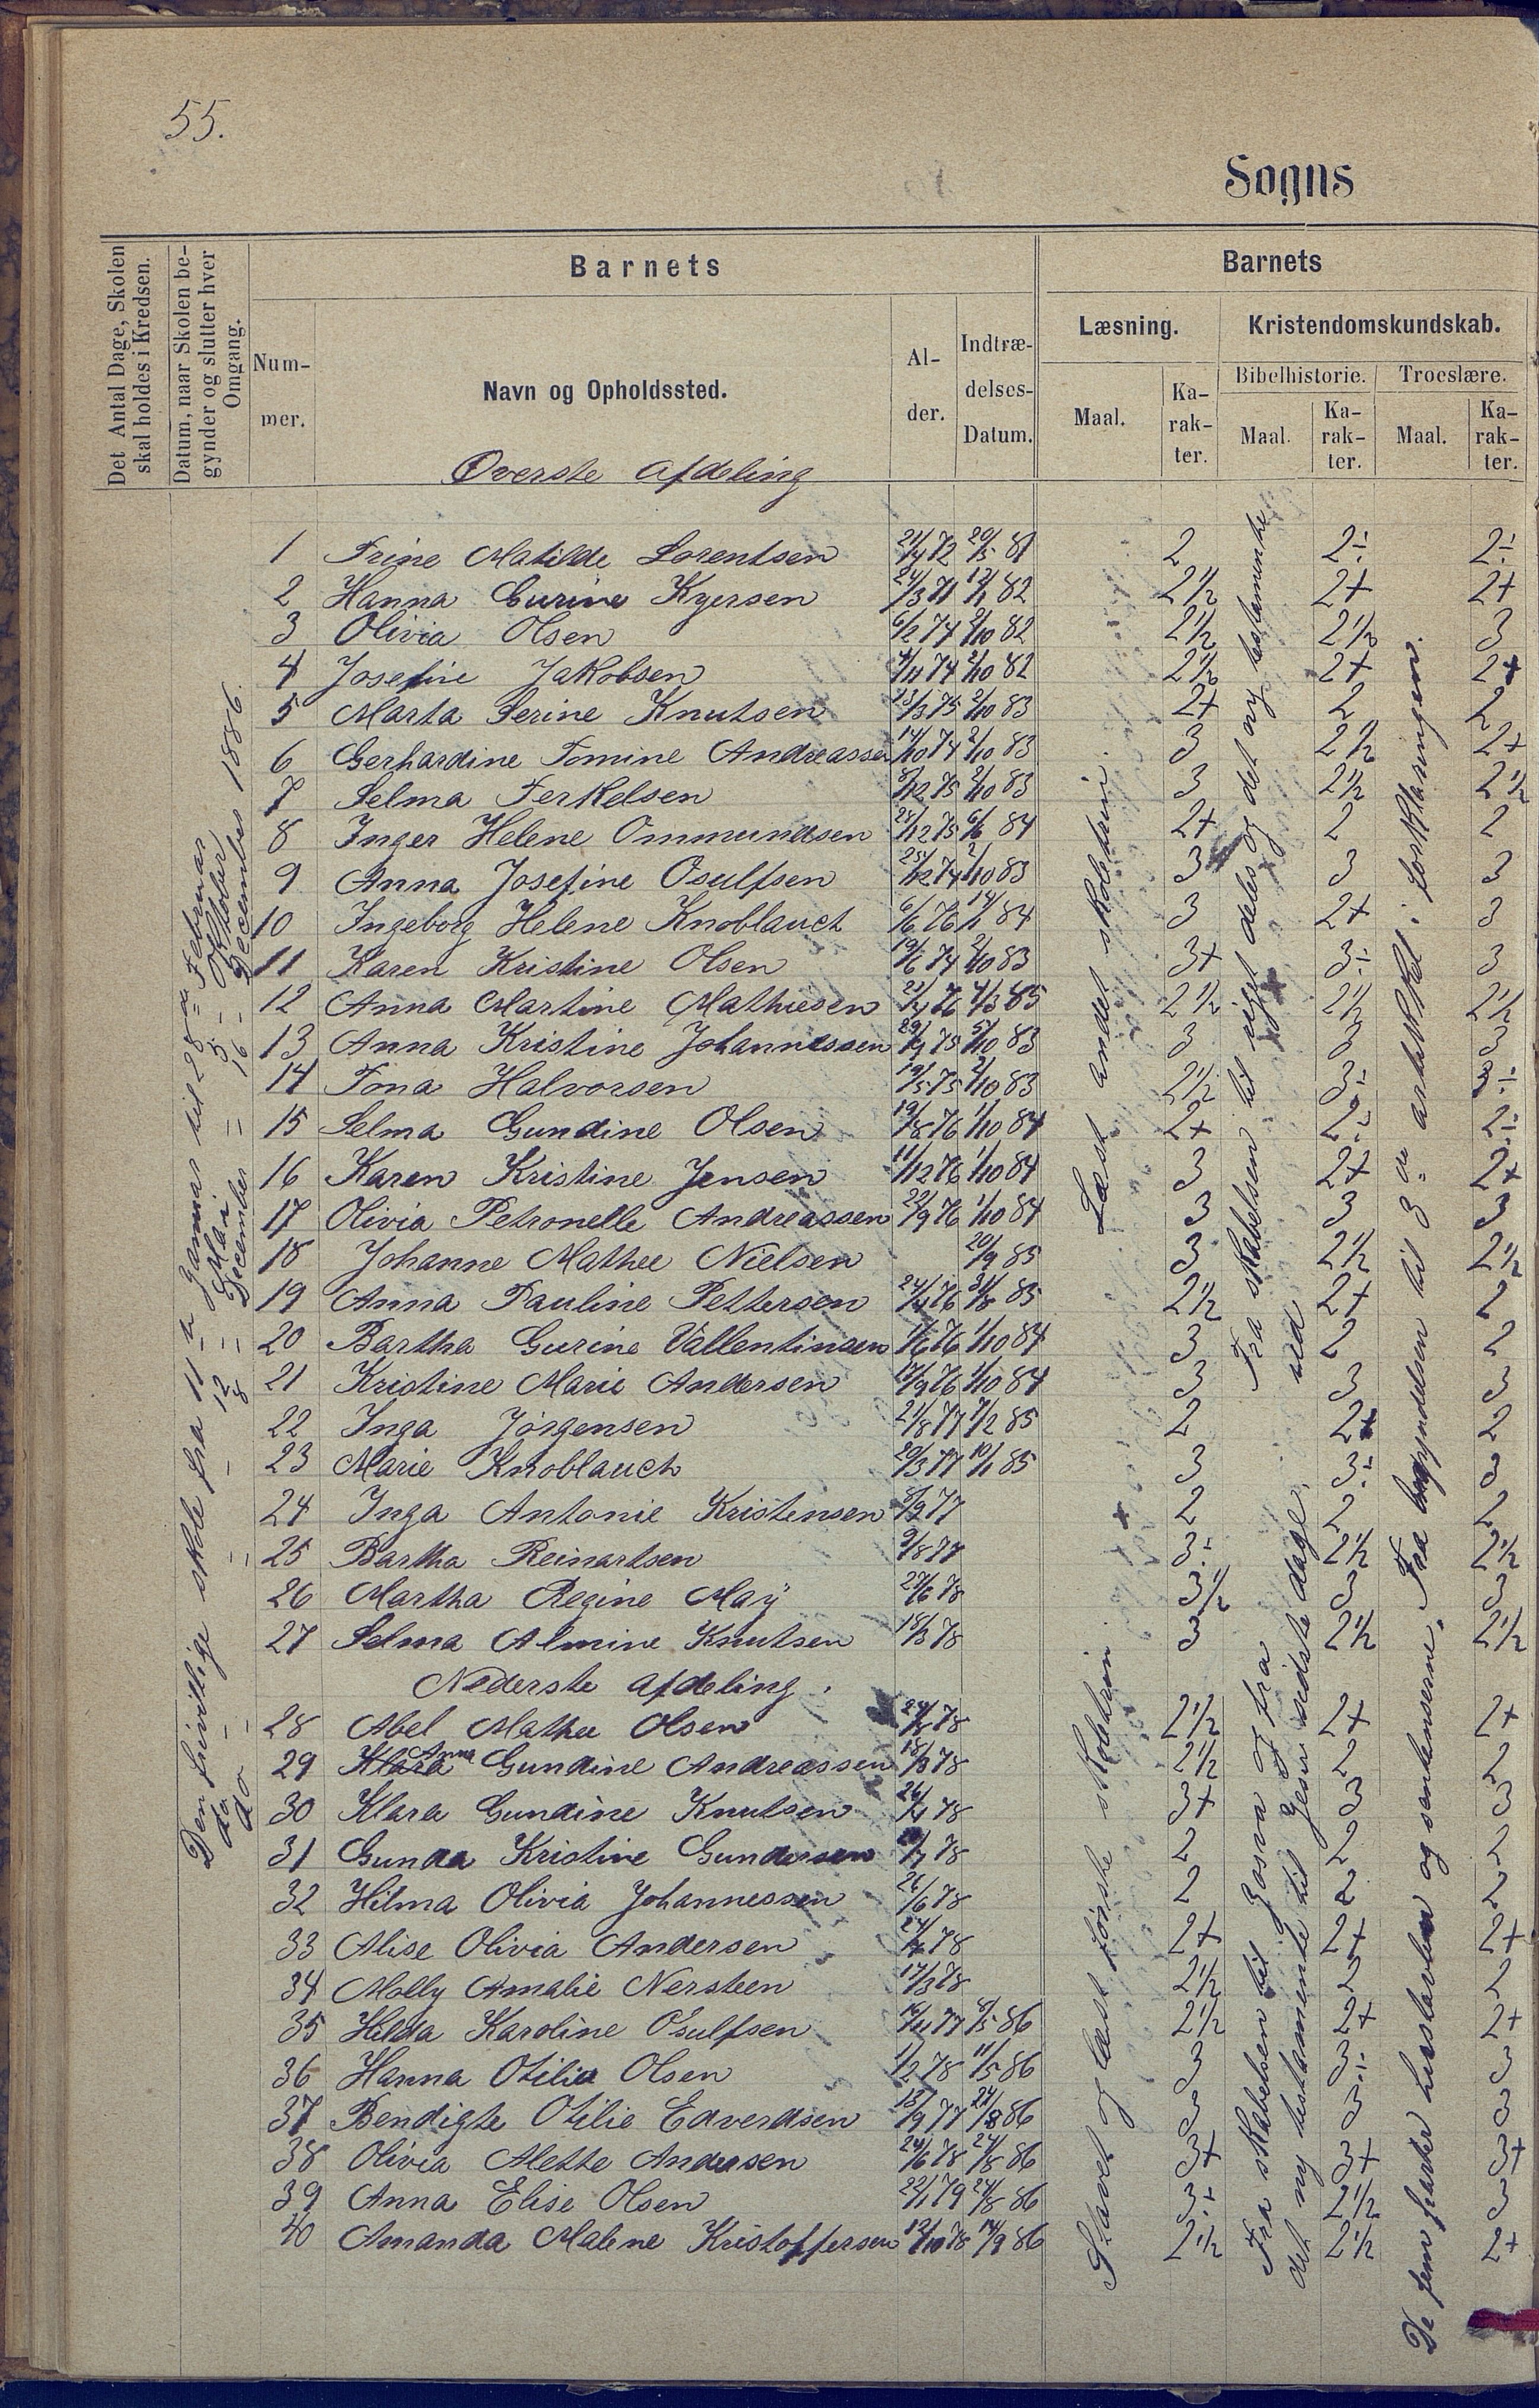 55.
Sogns
Det Antal Dage, Skolen
skal holdes i Kredsen.
Datum, naar Skolen be-
gynder og slutter hver
Omgang.
Barnets
Barnets
Num-
mer.
Navn og Opholdssted.
Al-
der.
Indtræ-
delses-
Datum.
Læsning.
Kristendomskundskab.
Maal.
Ka-
rak-
ter.
Bibelhistorie.
Troeslære.
Maal.
Ka-
rak-
ter.
Maal.
Ka-
rak-
ter.
Øverste afdeling
1 Trine Matilde Lorentsen 21/4 72 20/5 81 2 2÷ 2÷
2 Hanna Gurine Kyersen 24/3 71 12/1 82 2½ 2+ 2+
3 Olivia Olsen 6/2 74 2/10 82 2½ 2½ 3
4 Josefine Jakobsen 4/11 74 2/10 82 2½ 2+ 2+
5 Marta Serine Knutsen 23/3 75 2/10 83 2+ 2 2
6 Gerhardine Tomine Andreassen 14/10 74 2/10 83 3 2½ 2+
7 Selma Terkelsen 8/12 75 2/10 83 3 2½ 2½
8 Inger Helene Ommundsen 25/12 75 6/6 84 2+ 2 2
9 Anna Josefine Osulfsen 25/12 74 2/10 83 3 3 3
10 Ingeborg Helene Knoblauch 6/6 76 14/1 84 3 2+ 3
11 Karen Kristine Olsen 19/6 74 2/10 83 3+ 3÷ 3
12 Anna Martine Mathiesen 21/4 76 4/3 85 2½ 2½ 2½
13 Anna Kristine Johannessen 29/9 75 5/10 83 3 3 3
14 Tona Halvorsen 19/5 75 2/10 83 2½ 3÷ 3÷
15 Selma Gundine Olsen 19/8 76 1/10 84 2+ 2÷ 2÷
16 Karen Kristine Jensen 11/12 76 1/10 84 3 2+ 2+
17 Olivia Petronelle Andreassen 22/9 76 1/10 84 3 3 3
18 Johanne Mathee Nielsen 20/9 85 3 2½ 2½
19 Anna Pauline Pettersen 24/4 76 31/8 85 2½ 2+ 2
20 Bartha Gurine Vallentinsen 1/6 76 1/10 84 3 2 2
21 Kristine Marie Andersen 17/9 76 1/10 84 3 3 3
22 Inga Jørgensen 21/8 77 7/2 85 2 2+ 2
23 Marie Knoblauch 20/3 77 10/1 85 3 3÷ 3
24 Inga Antonie Kristensen 8/9 77 2 2 2
25 Bartha Reinartsen 9/8 77 3÷ 2½ 2½
26 Martha Regine Maÿ 27/6 78 3½ 3 3
27 Selma Almine Knutsen 18/3 78 3 2½ 2½
Nederste afdeling.
28 Abel Mathee Olsen 24/8 78 2½ 2+ 2+
29 Klara Anna Gundine Andreassen 18/3 78 2½ 2 2
30 Klara Gundine Knutsen 26/4 78 3+ 3 3
31 Gunda Kristine Gundersen /7 78 2 2 2
32 Hilma Olivia Johannessen 26/6 78 2 2 2
33 Alise Olivia Andersen 78 2+ 2+ 2+
34 Molly Amalie Nersteen 17/3 78 2½ 2 2
35 Hilda Karoline Osulfsen 16/11 77 5/5 86 2½ 2+ 2+
36 Hanna Otilia Olsen 1/2 78 11/5 86 3 3÷ 3
37 Bendigte Otilie Edverdsen 13/9 77 24/8 86 3 3 3
38 Olivia Alette Andersen 24/6 78 24/8 86 3+ 3+ 3+
39 Anna Elise Olsen 22/1 79 24/8 86 3÷ 2½ 3
40 Amanda Malene Kristoffersen 12/10 78 14/9 86 2½ 2½ 2+
Den frivillige skole fra 11te Januar til 28de Februar
do – 12 – Mai – 5 – Oktober
do – 8 – December – 16 – December 1886.
Læst andet skoletrin.
Stavet og læst første skoletrin.
Fra skabelsen til riget deles og det ny testamente
Fra skabelsen til Josva og fra
det ny testamente til Jesu sidste dage.
Fra begyndelsen til 3de artikkel i forklaringen.
De fem parter og sentenserne.